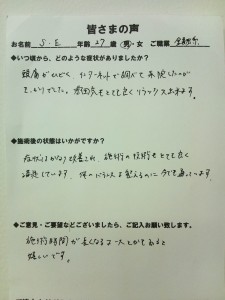 皆さまの声
お名前 S.E 年齢 27 歳 男・女 ご職業
◆いつ頃から、どのような症状がありましたか?
頭痛がひどく、インターネットで調べて来院したのが
きっかけでした。雰囲気もとても良くリラックス出来ます。
◆施術後の状態はいかがですか?
症状はかなり改善され、施術の技術もとても良く
満足しています。体のバランスを整えるのに今でも通っています。
◆ご意見・ご要望などございましたら、ご記入お願い致します。
施術時間が長くなるコースとかもあると
嬉しいです。